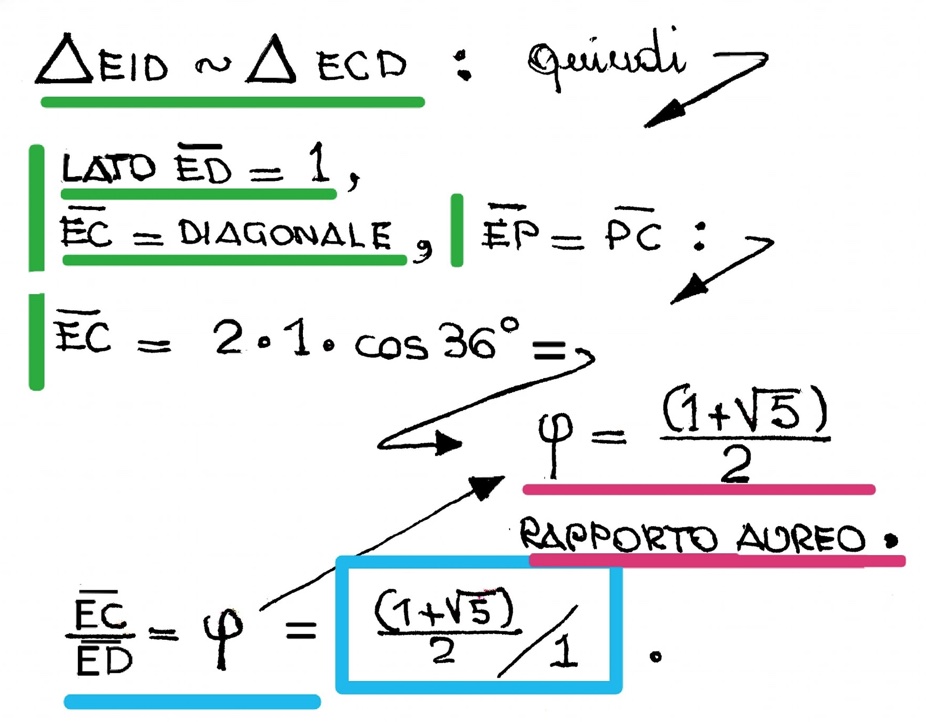 △EID ~ △ ECD : quindi
LATO E̅D̅ = 1,
E̅C̅ = DIAGONALE, E̅P̅ = P̅C̅ :
E̅C̅ = 2·1·cos 36° =
φ = (1+√5)/2
RAPPORTO AUREO.
E̅C̅/E̅D̅ = φ = (1+√5)/2 / 1 .